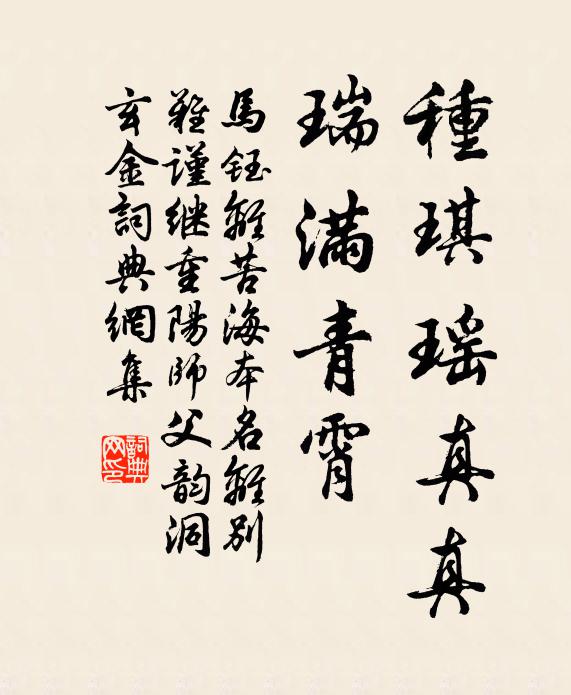 種琪瑶真真
瑞滿青霄
馬鈺離苦海本名離別
難謹继重陽師父韵洞
玄金詞典網集
詞典网印